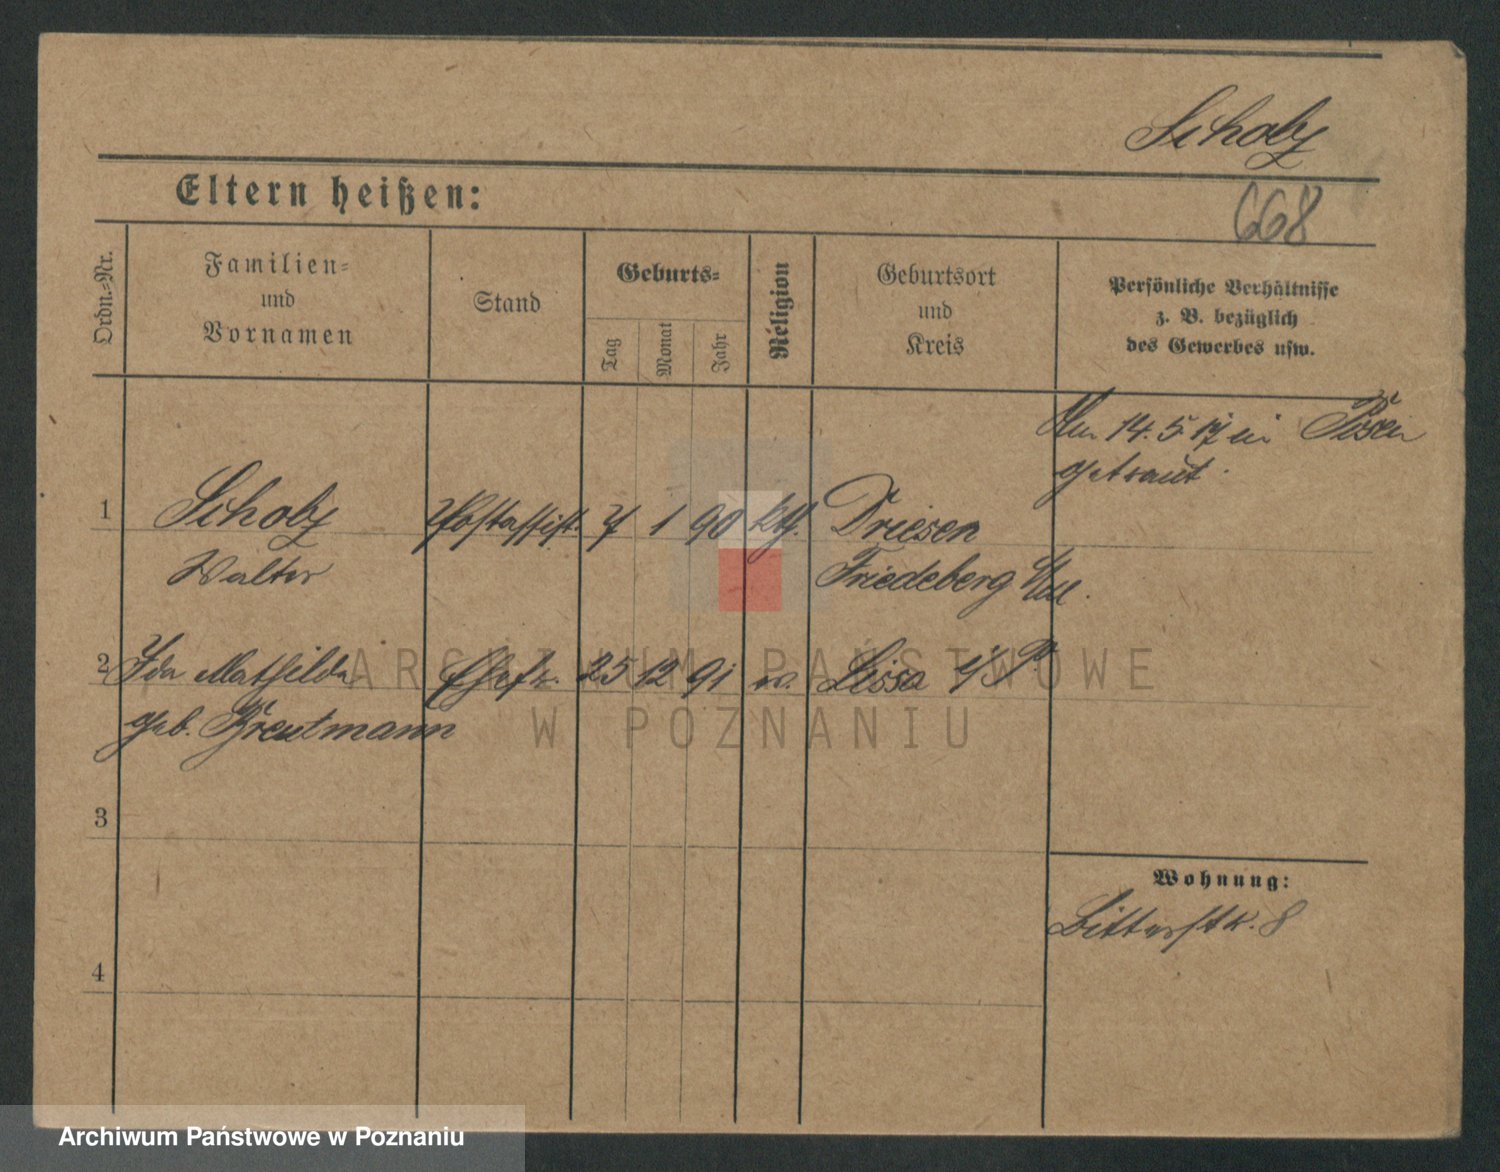 Scholz
Eltern heißen:
668
Ordn.=Nr.
Familien=
und
Vornamen
Stand
Geburts=
Tag
Monat
Jahr
Religion
Geburtsort
und
Kreis
Persönliche Verhältnisse
z. B. bezüglich
des Gewerbes usw.
Am 14. 5. 17 in Posen
getraut.
1 Scholz Postassist. 7 1 90 kth. Driesen
Walter Friedeberg Nm.
2 Ida Mathilde Ehefr. 25 12 91 ev. Lissa i/P.
geb. Kreutmann
3
Wohnung:
Ritterstr. 8
4
ARCHIWUM PAŃSTWOWE
W POZNANIU
Archiwum Państwowe w Poznaniu